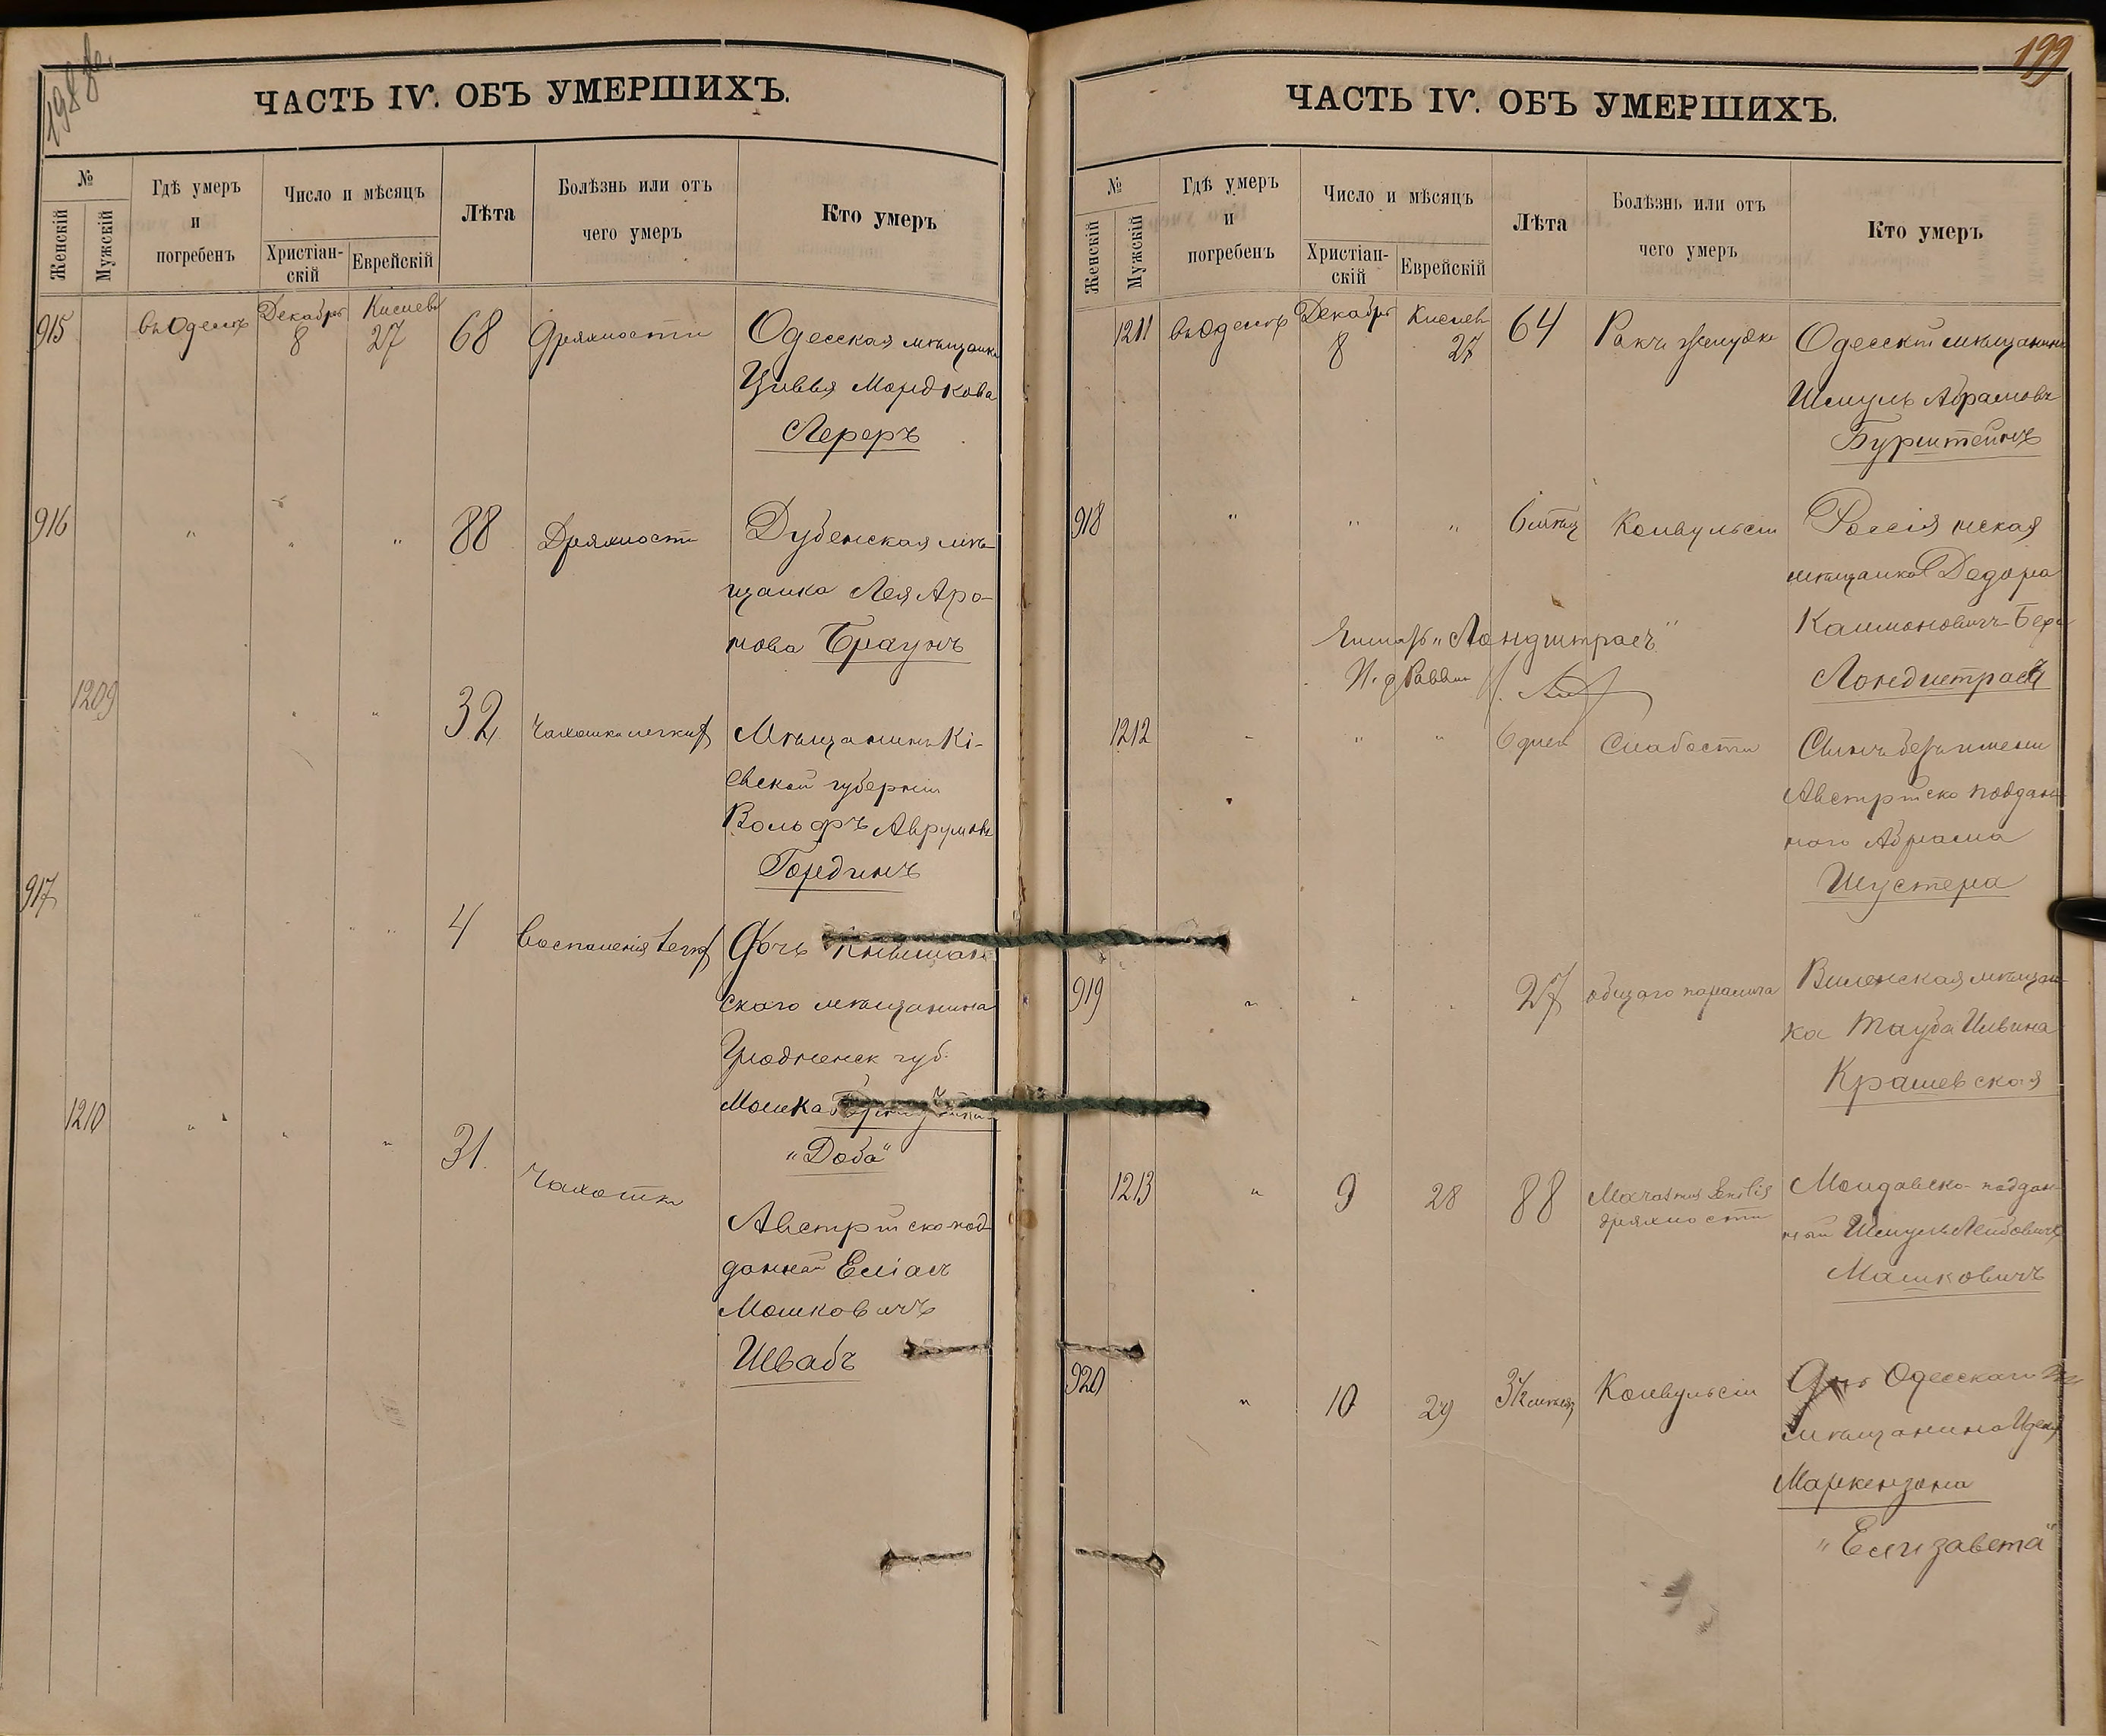 198 об.
ЧАСТЬ IV. ОБЪ УМЕРШИХЪ.
№
Женскій
Мужскій
Гдѣ умеръ
и
погребенъ
Число и мѣсяцъ
Христіан-
скій
Еврейскій
Лѣта
Болѣзнь или отъ
чего умеръ
Кто умеръ
915 въ Одессѣ Декабря 8 Кислева 27 68 Дряхлости Одесская мѣщанка
Цивья Мордкова
Лереръ
916 " " " 88 Дряхлости Дубенская мѣ-
щанка Лея Аро-
нова Браунъ
1209 " " 32 Чахотка легкихъ Мѣщанинъ Кі-
евской губерніи
Вольфъ Аврумовъ
Гординъ
917 " " " 4 Воспаленія легк. Дочь
скаго мѣщанина
Гродненск губ.
Мошка
"Доба"
1210 " " " 31 Чахотки
Австрійско под-
данный Еліасъ
Мошковичъ
Швабъ
199
ЧАСТЬ IV. ОБЪ УМЕРШИХЪ.
№
Женскій
Мужскій
Гдѣ умеръ
и
погребенъ
Число и мѣсяцъ
Христіан-
скій
Еврейскій
Лѣта
Болѣзнь или отъ
чего умеръ
Кто умеръ
1211 въ Одессѣ Декабря 8 Кислев 27 64 Ракъ желудка Одесскій мѣщанинъ
Шмуль Абрамовъ
Бурштейнъ
918 " " " 6 мѣсяц Конвульсіи Россіянская
мѣщанка Двойра
Калмановичъ-Бер
Ландштрасъ
"Ландштрасъ"
И. д Раввин
1212 " " " 6 дней Слабости Сынъ безъ имени
Австрійско поддан-
наго Абрама
Шустера
919 " " " 27 общаго паралича Виленская мѣщан-
ка Тауба Илвина
Крашевская
1213 " 9 28 88 Marasmus Senilis
дряхлости
Молдавско-поддан-
ный Шмуль Лейбовичъ
Машковичъ
920 " 10 29 3½ мѣсяц Конвульсіи Дочь Одесскаго
мѣщанина Ицека
Маркензона
"Елизавета"